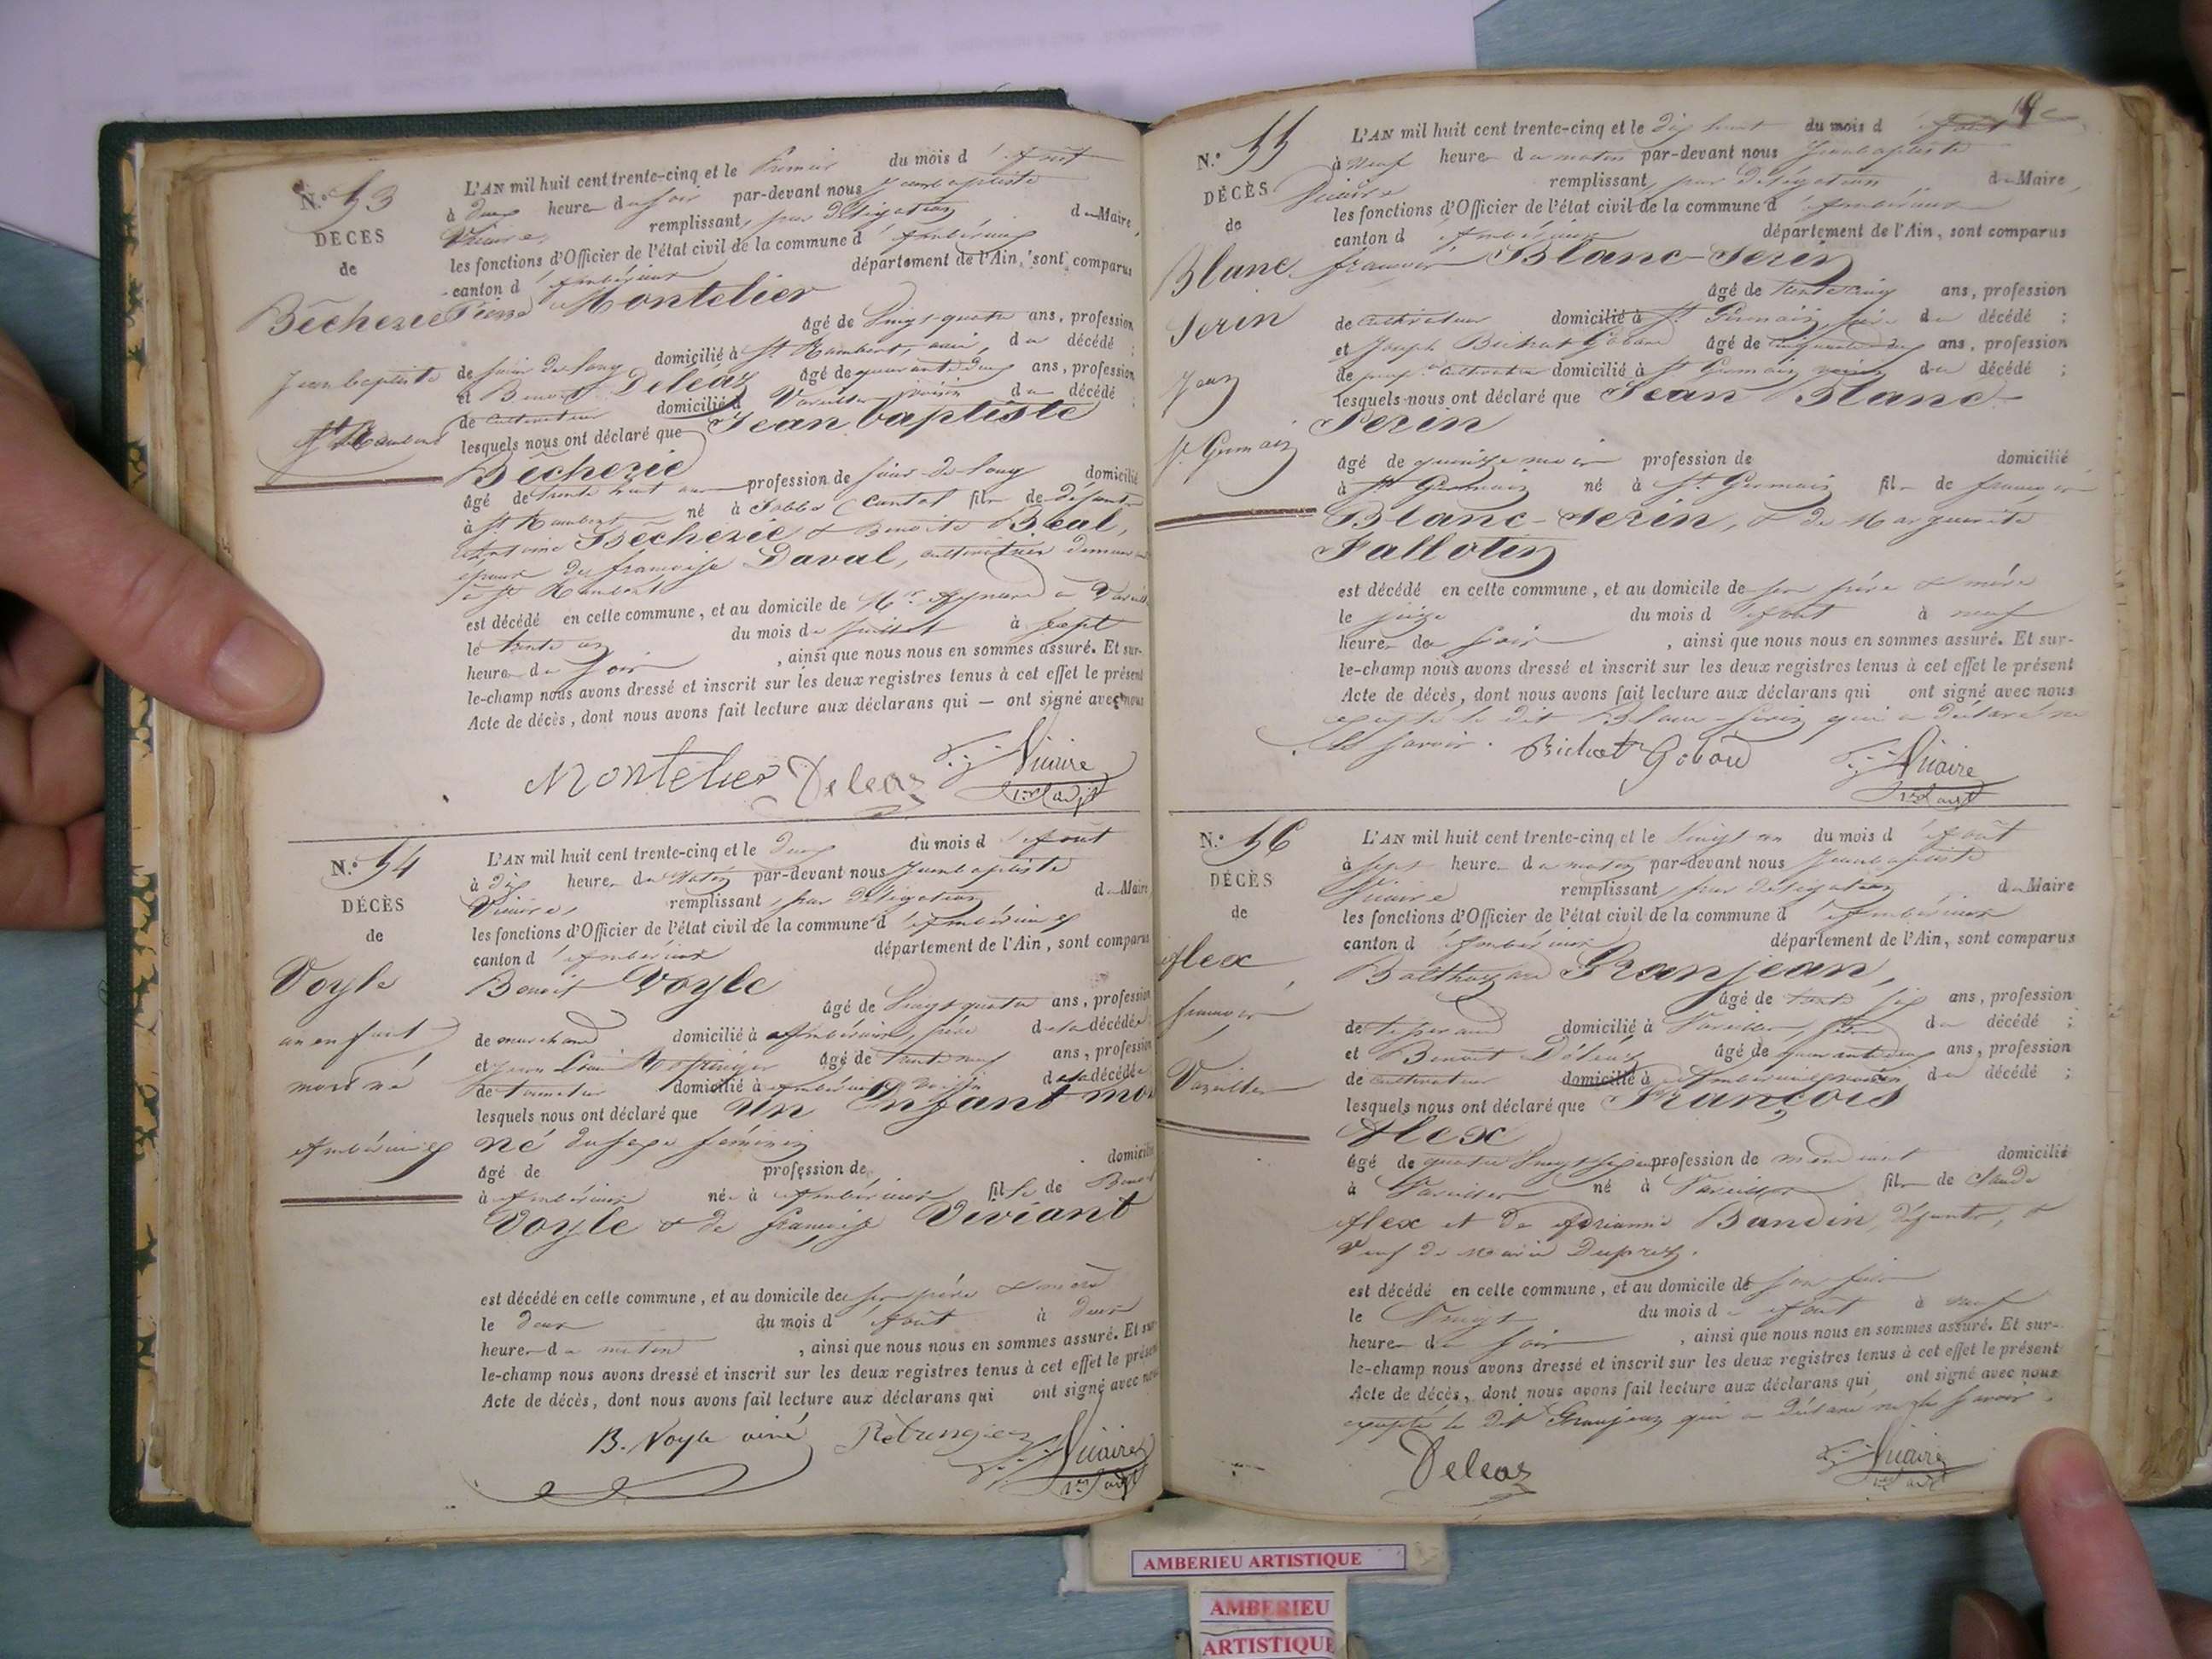 N.° 53
DÉCES
de
Bècherie
Jean baptiste
St Rambert
L'AN mil huit cent trente-cinq et le Premier du mois d'Août
à deux heures du soir par-devant nous Jean baptiste
Vicaire, remplissant, par délégation du Maire,
les fonctions d'Officier de l'état civil de la commune d'Ambérieux
canton d'Ambérieux département de l'Ain, sont comparus
Pierre Montelier
âgé de Vingt-quatre ans, profession
de scieur de long domicilié à St Rambert, ami, du décédé ;
et Benoit Deléaz âgé de quarante deux ans, profession
de cultivateur domicilié à Vareilles voisin du décédé ;
lesquels nous ont déclaré que Jean baptiste
Bècherie
âgé de trente huit ans profession de scieur de long domicilié
à St Rambert né à (Cantal fils de défunts
Antoine Bècherie & Benoite Béal,
époux de françoise Daval, demeurant
à St Rambert
est décédé en cette commune, et au domicile de Mr à Vareilles
le trente un du mois de Juillet à sept
heures du soir, ainsi que nous nous en sommes assuré. Et sur-
le-champ nous avons dressé et inscrit sur les deux registres tenus à cet effet le présent
Acte de décès, dont nous avons fait lecture aux déclarans qui — ont signé avec nous
Montelier Deleaz Vicaire
N.° 54
DÉCÈS
de
Voyle
un enfant
mort né
Ambérieux
L'AN mil huit cent trente-cinq et le deux du mois d'Août
à dix heures du Matin par-devant nous Jean baptiste
Vicaire, remplissant, par délégation du Maire
les fonctions d'Officier de l'état civil de la commune d'Ambérieux
canton d'Ambérieux département de l'Ain, sont comparus
Benoit Voyle
âgé de Vingt quatre ans, profession
de marchand domicilié à Ambérieux, père de la décédée
et Jean Louis âgé de trente neuf ans, profession
de domicilié à Ambérieux voisin de la décédée
lesquels nous ont déclaré que Un Enfant mort
né du sexe féminin
âgé de profession de domicilié
à Ambérieux née à Ambérieux fille de Benoit
Voyle & de françoise Viviant
est décédé en cette commune, et au domicile de ses père & mère
le deux du mois d'Août à deux
heures du matin, ainsi que nous nous en sommes assuré. Et sur-
le-champ nous avons dressé et inscrit sur les deux registres tenus à cet effet le présent
Acte de décès, dont nous avons fait lecture aux déclarans qui ont signé avec nous
B. Voyle ainé Vicaire
N.° 55
DÉCÈS
de
Blanc
Serin
Jean
St Germain
L'AN mil huit cent trente-cinq et le dix huit du mois d'Août
à neuf heures du matin par-devant nous Jean baptiste
Vicaire remplissant, par délégation du Maire,
les fonctions d'Officier de l'état civil de la commune d'Ambérieux
canton d'Ambérieux département de l'Ain, sont comparus
françois Blanc-Serin
âgé de trente cinq ans, profession
de cultivateur domicilié à St Germain, père du décédé ;
et Joseph Bichat Gobard âgé de cinquante deux ans, profession
de cultivateur domicilié à St Germain voisin du décédé ;
lesquels nous ont déclaré que Jean Blanc-
Serin
âgé de quinze mois profession de domicilié
à St Germain né à St Germain fils de françois
Blanc-Serin, & de Marguerite
Fallotin
est décédé en cette commune, et au domicile de ses père & mère
le seize du mois d'Août à neuf
heures du soir, ainsi que nous nous en sommes assuré. Et sur-
le-champ nous avons dressé et inscrit sur les deux registres tenus à cet effet le présent
Acte de décès, dont nous avons fait lecture aux déclarans qui ont signé avec nous
excepté le dit Blanc-Serin qui a déclaré ne
le savoir. Bichat Gobard Vicaire
N.° 56
DÉCÈS
de
Alex
françois
Vareilles
L'AN mil huit cent trente-cinq et le Vingt un du mois d'Août
à sept heures du matin par-devant nous Jean baptiste
Vicaire remplissant, par délégation du Maire
les fonctions d'Officier de l'état civil de la commune d'Ambérieux
canton d'Ambérieux département de l'Ain, sont comparus
Balthazard Granjean,
âgé de trente six ans, profession
de tisserand domicilié à Vareilles, du décédé ;
et Benoit Deléaz âgé de quarante deux ans, profession
de cultivateur domicilié à Ambérieux voisin du décédé ;
lesquels nous ont déclaré que François
Alex
âgé de quatre Vingt six ans profession de mendiant domicilié
à Vareilles né à Vareilles fils de Claude
Alex et de Adrianne Bandin, défunts, &
Veuf de Marie Duprez.
est décédé en cette commune, et au domicile de son
le Vingt du mois d'Août à neuf
heures du soir, ainsi que nous nous en sommes assuré. Et sur-
le-champ nous avons dressé et inscrit sur les deux registres tenus à cet effet le présent
Acte de décès, dont nous avons fait lecture aux déclarans qui ont signé avec nous
excepté le dit Granjean qui a déclaré ne le savoir.
Deleaz Vicaire
AMBERIEU ARTISTIQUE
AMBERIEU
ARTISTIQUE